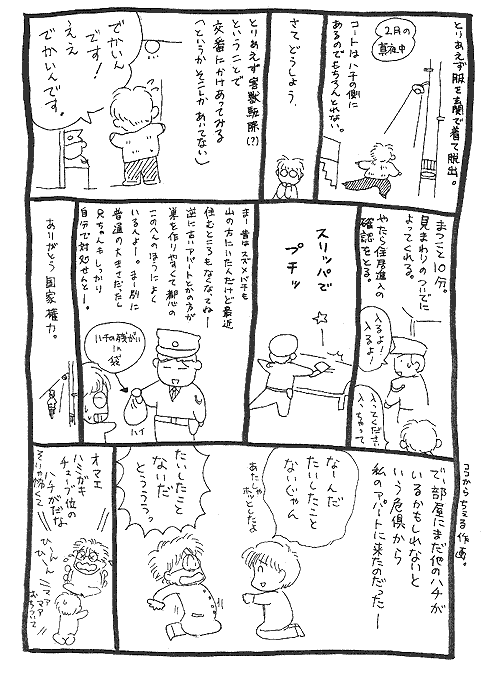 とりあえず服を玄関で着て脱出。
2月の
真夜中
コートはハチの側に
あるのでもちろんとれない。
さてどうしよう。
とりあえず害獣駆除(?)
ということで
交番にかけあってみる
(というかそこしかあいてない)
でかいん
です!
ええ
でかいんです。
まつこと10分。
見まわりのついでに
よってくれる。
やたら住居進入の
確認をとる。
入るよ!
入るよ!
入ってください
入っちゃって
スリッパで
プチッ
まー昔はスズメバチも
山の方にいたんだけど最近
住むところもなくなってねー
逆に古いアパートとかの方が
巣を作りやすくて都心の
このへんのほうによく
いるんよー。まー別に
普通の大きさだったし
兄ちゃんもしっかり
自分で対処せんとー。
ハチの残がい
の
袋
ハイ
ありがとう国家権力。
ココからちがう作画。
で、部屋にまだ他のハチが
いるかもしれないと
いう危倶から
私のアパートに来たのだったー
なーんだ
たいしたこと
ないじゃん
あたしゃ
ホッとしたよ
たいしたこと
ないだ
とうううっ
オマエ
ハミガキ
チューブ位の
ハチがだな。
そりゃ怖くて
ひーん
ひーん
マァ
マァ
おちついて